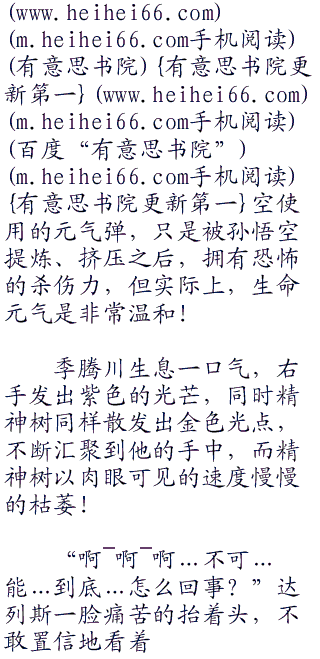 (www.heihei66.com)
(m.heihei66.com手机阅读)
(有意思书院) {有意思书院更
新第一} (www.heihei66.com)
(m.heihei66.com手机阅读)
(百度“有意思书院”)
(m.heihei66.com手机阅读)
{有意思书院更新第一} 空使
用的元气弹，只是被孙悟空
提炼、挤压之后，拥有恐怖
的杀伤力，但实际上，生命
元气是非常温和！
季腾川生息一口气，右
手发出紫色的光芒，同时精
神树同样散发出金色光点，
不断汇聚到他的手中，而精
神树以肉眼可见的速度慢慢
的枯萎！
“啊¯啊¯啊…不可…
能…到底…怎么回事？”达
列斯一脸痛苦的抬着头，不
敢置信地看着